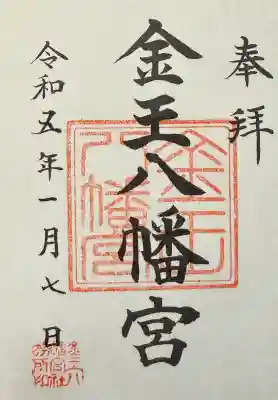 奉拝
金王八幡宮
令和五年一月七日
金王八幡宮